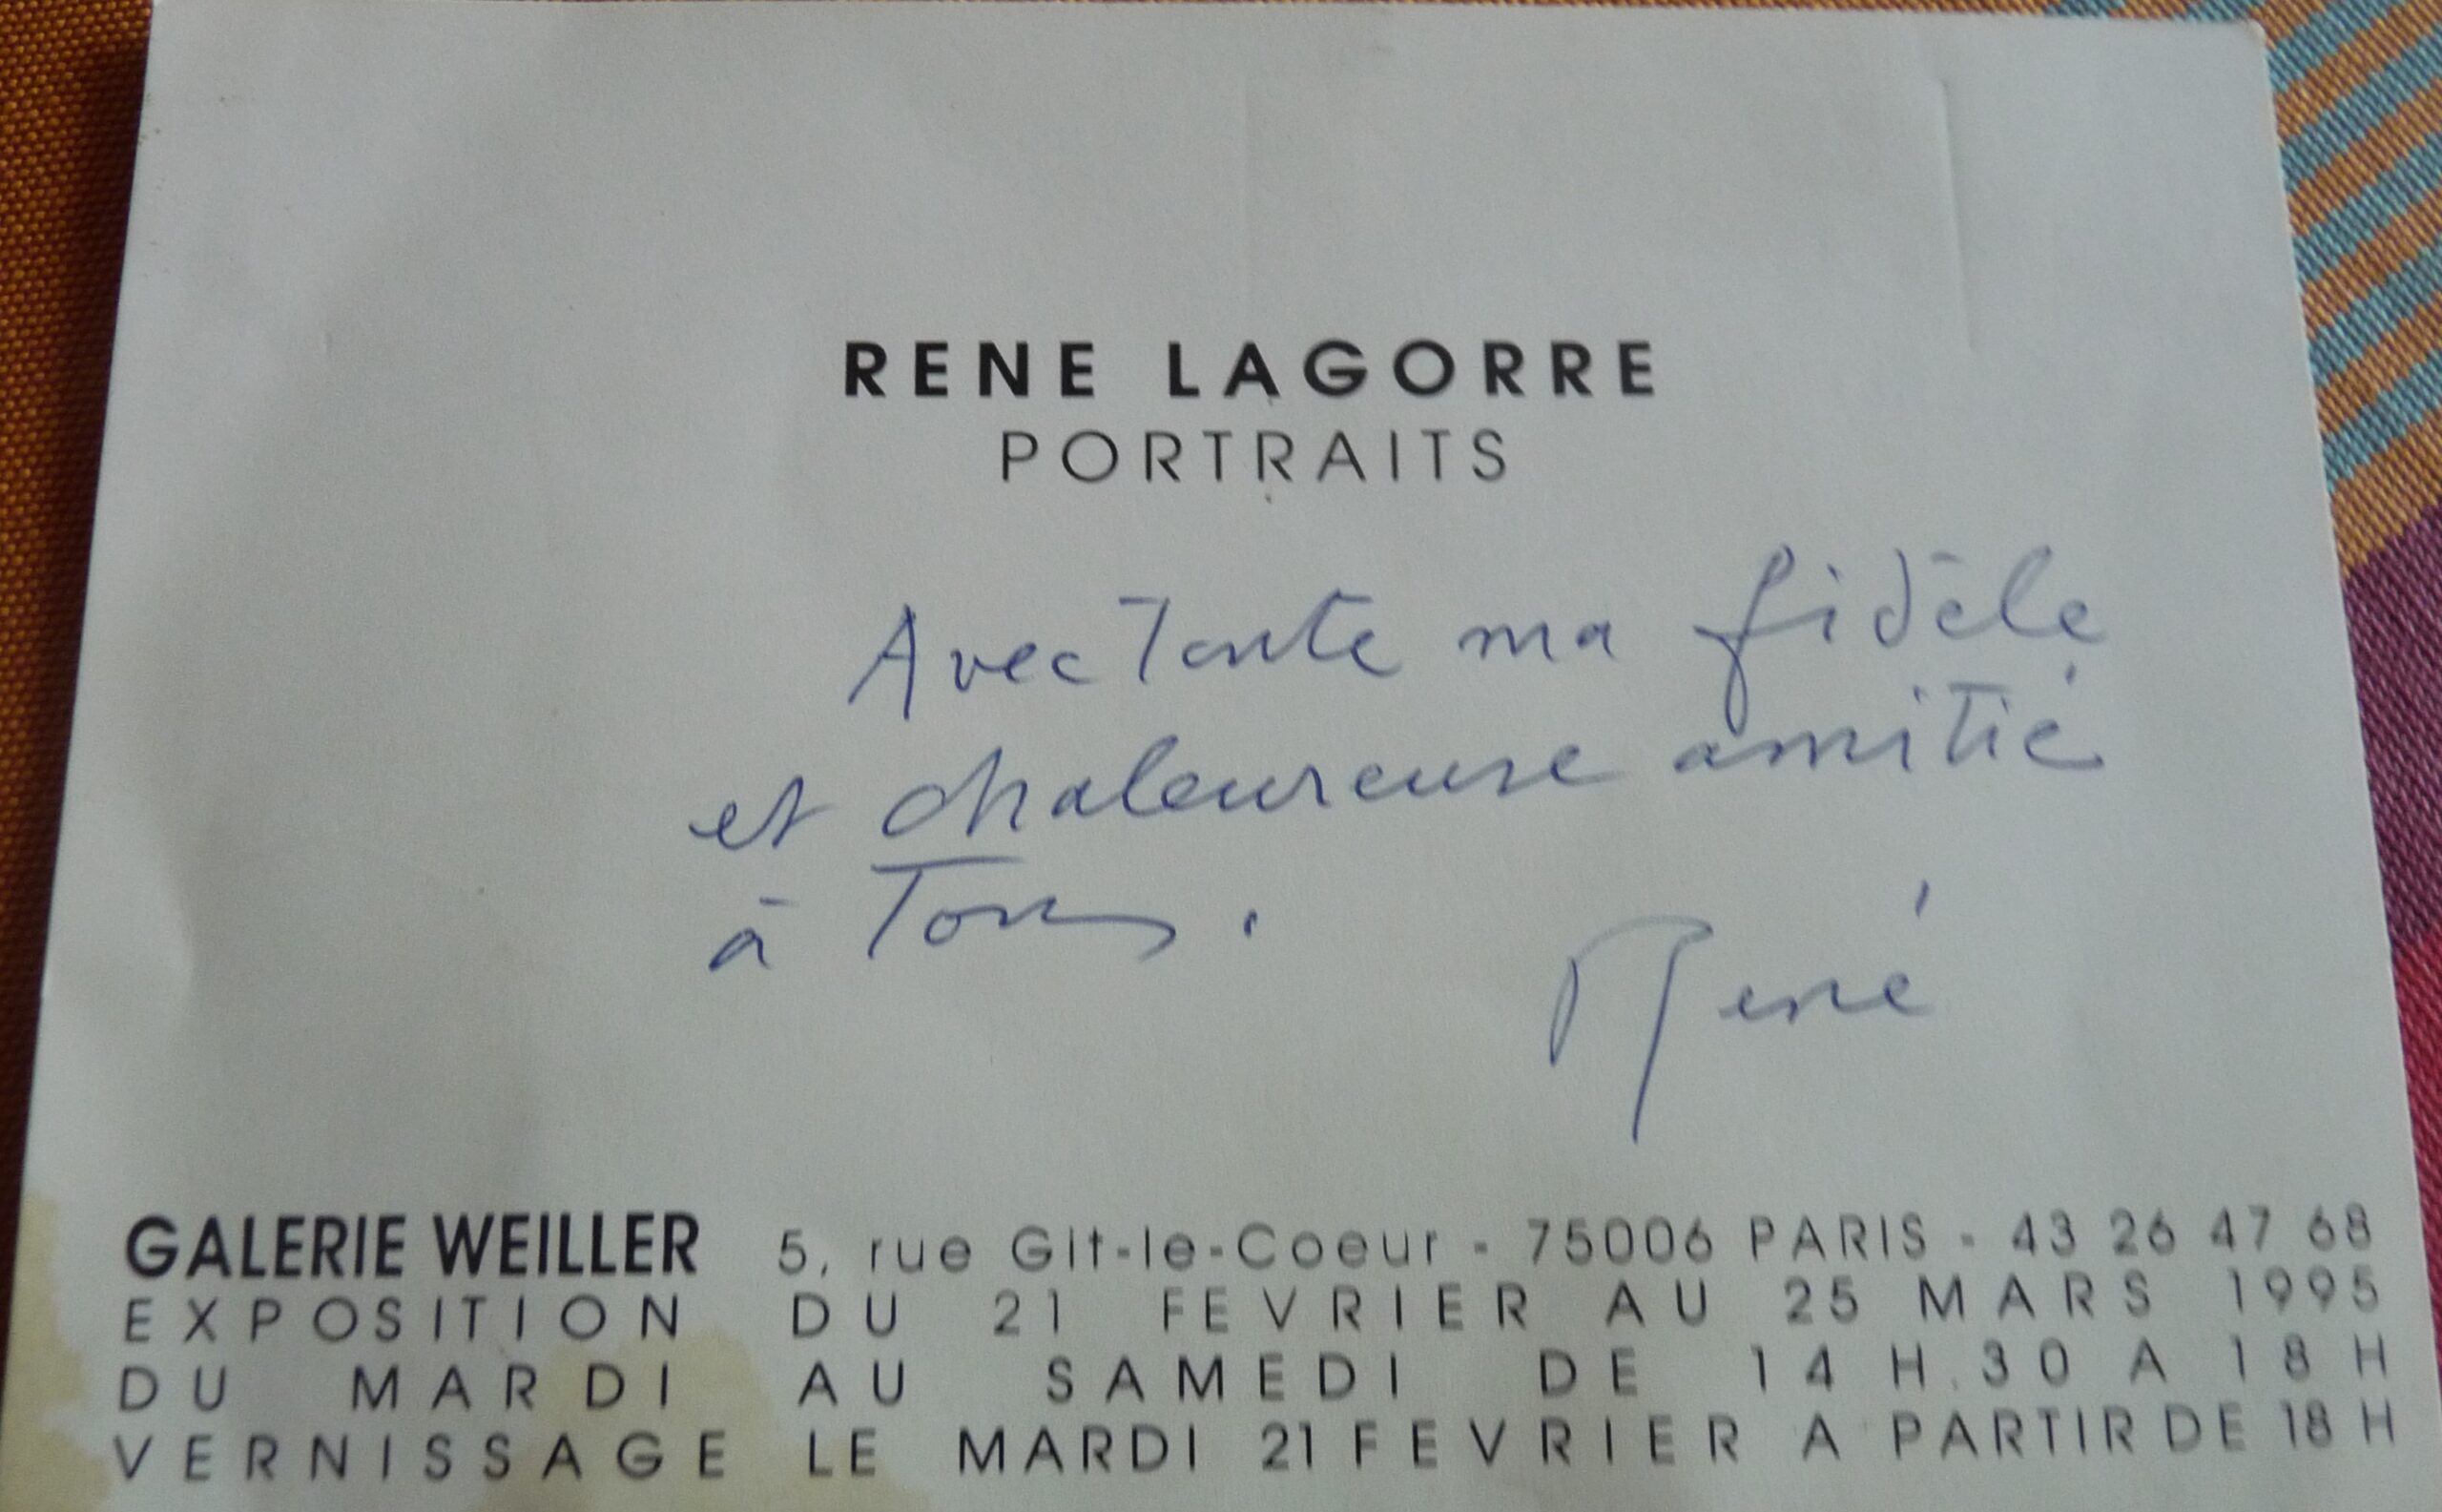 RENE LAGORRE
PORTRAITS
Avec toute ma fidèle
et chaleureuse amitié
à Tous.
René
GALERIE WEILLER 5, rue Gît-le-Coeur - 75006 PARIS - 43 26 47 68
EXPOSITION DU 21 FEVRIER AU 25 MARS 1995
DU MARDI AU SAMEDI DE 14 H.30 A 18 H
VERNISSAGE LE MARDI 21 FEVRIER A PARTIR DE 18 H